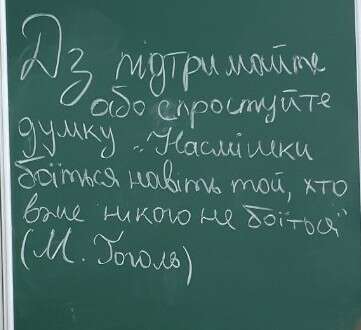 Дз підтримайте
або спростуйте
думку „Насмішки
боїться навіть той, хто
вже нікого не боїться"
(М. Гоголь)